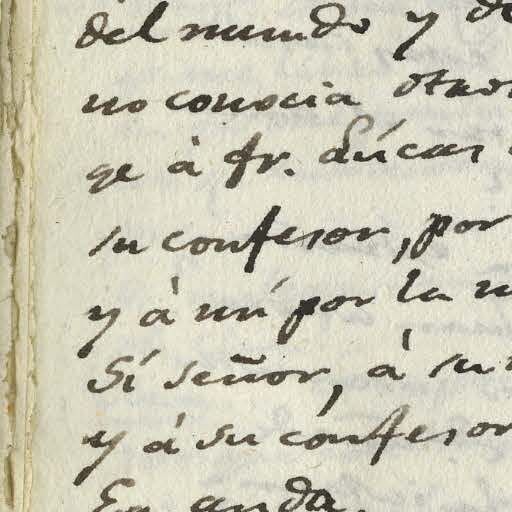 del mundo y de
no conocia otro
ge à fr. Lúcas
su confesor, por
y à mí por la
Sí señor, à su
y á su confesor
Ea anda.